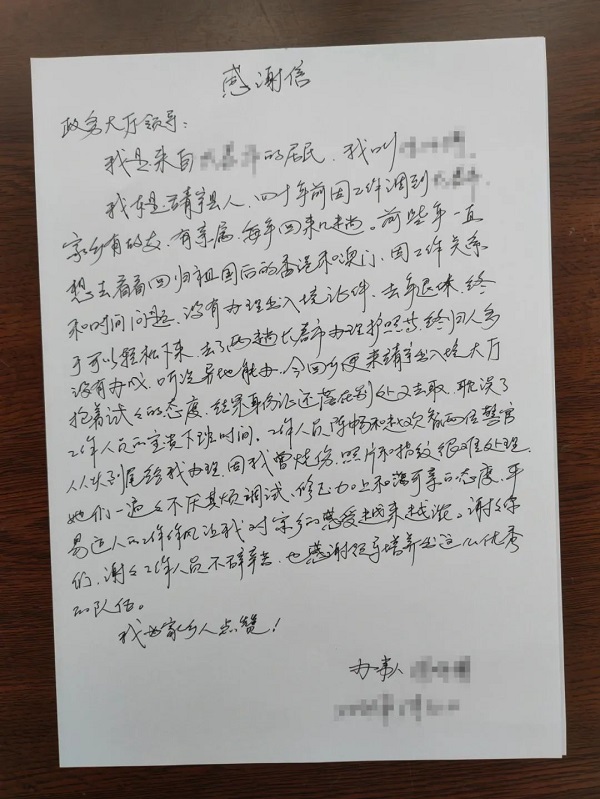 感谢信
政务大厅领导：
我是来自 的居民，我叫
我本是靖宇县人，四十年前因工作调到
家乡有故友，有亲属，每年回来几趟。前些年一直
想去看看回归祖国后的香港和澳门，因工作关系
和时间问题，没有办理出入境证件，去年退休，终
于可以轻松下来，去了两趟长春市办理护照等，终归人多
没有办成，听说异地能办，今回乡便来靖宇出入境大厅
抱着试々的态度，结果身份证还落在别处又去取，耽误了
工作人员的宝贵下班时间。工作人员陈畅和赵 两位警官
从头到尾给我办理，因我曾烧伤，照片和指纹很难处理，
她们一遍々不厌其烦调试、修正，加上和蔼可亲的态度，平
易近人的工作作风让我对家乡的感受越来越深。谢々你
们，谢々工作人员不辞辛苦，也感谢领导培养出这么优秀
的队伍。
我为家乡人点赞！
办事人